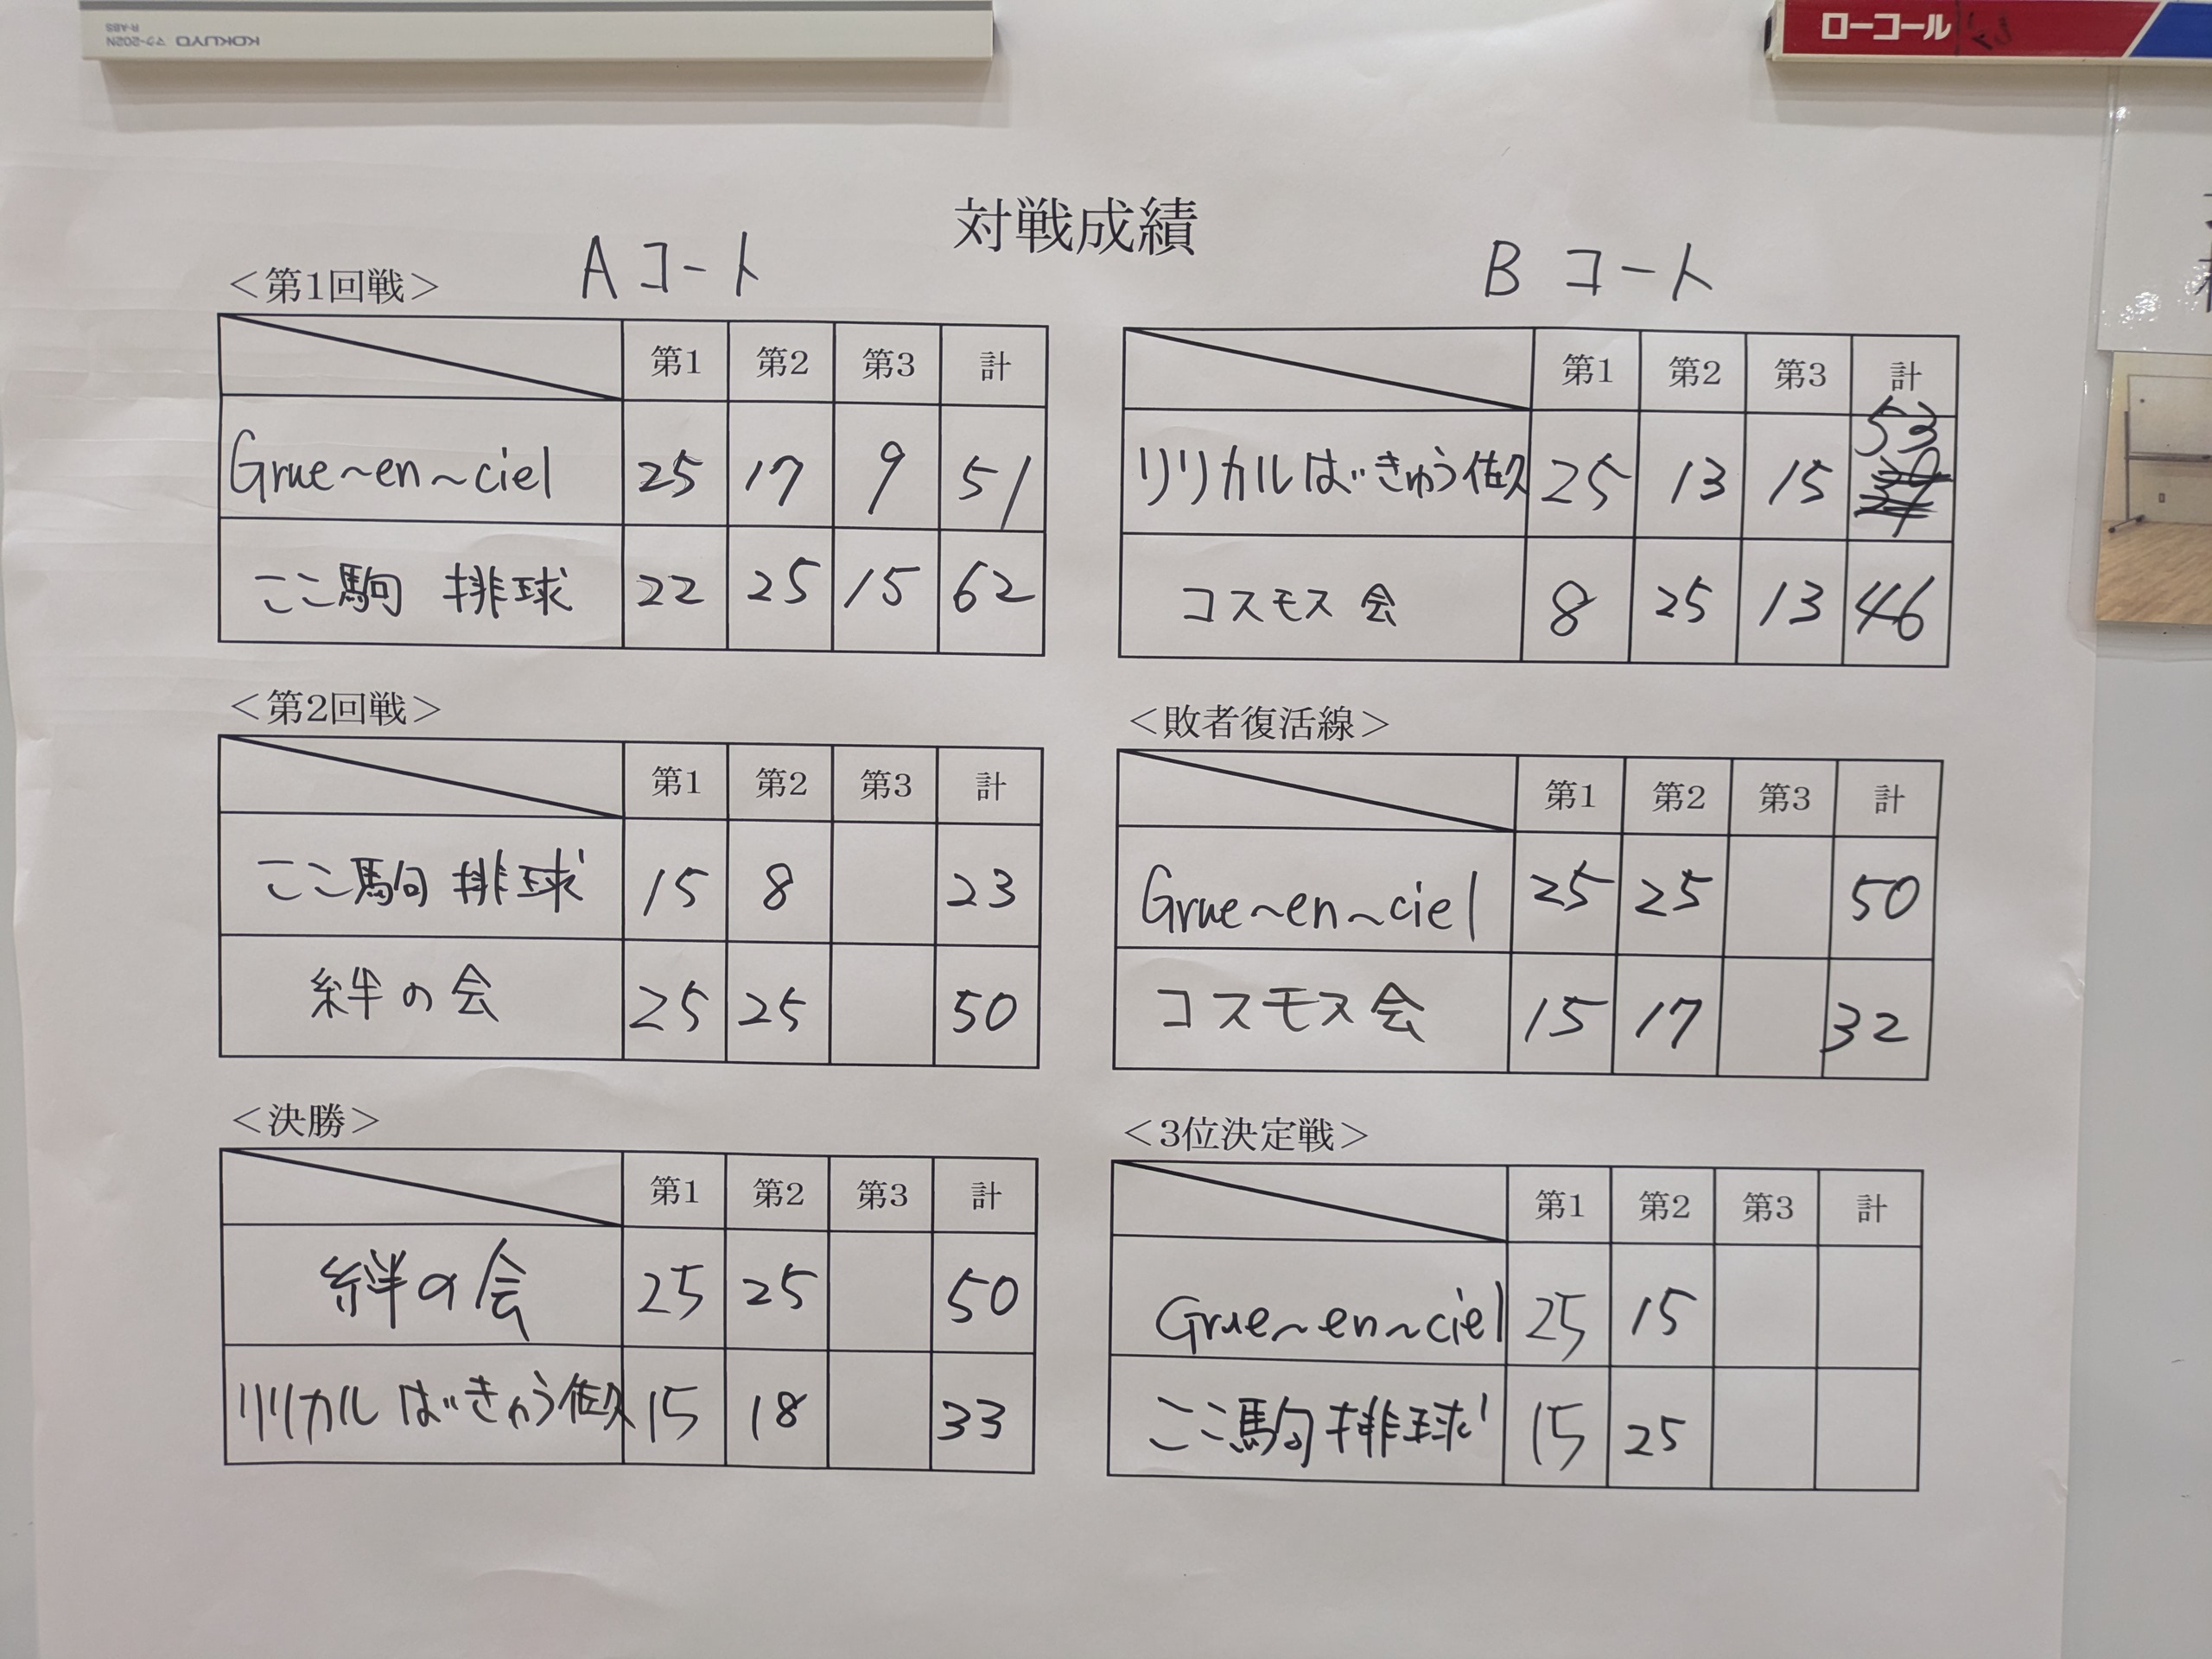 KOKUYO マク-202N
R-ABS
ローコール
対戦成績
Aコート
Bコート
<第1回戦>
第1 第2 第3 計
Grue~en~ciel 25 17 9 51
ここ駒 排球 22 25 15 62
第1 第2 第3 計
リリカルばきゅう佐久 25 13 15 53
コスモス会 8 25 13 46
<第2回戦>
第1 第2 第3 計
ここ駒 排球 15 8 23
絆の会 25 25 50
<敗者復活線>
第1 第2 第3 計
Grue~en~ciel 25 25 50
コスモス会 15 17 32
<決勝>
第1 第2 第3 計
絆の会 25 25 50
リリカル ばきゅう佐久 15 18 33
<3位決定戦>
第1 第2 第3 計
Grue~en~ciel 25 15
ここ駒排球 15 25